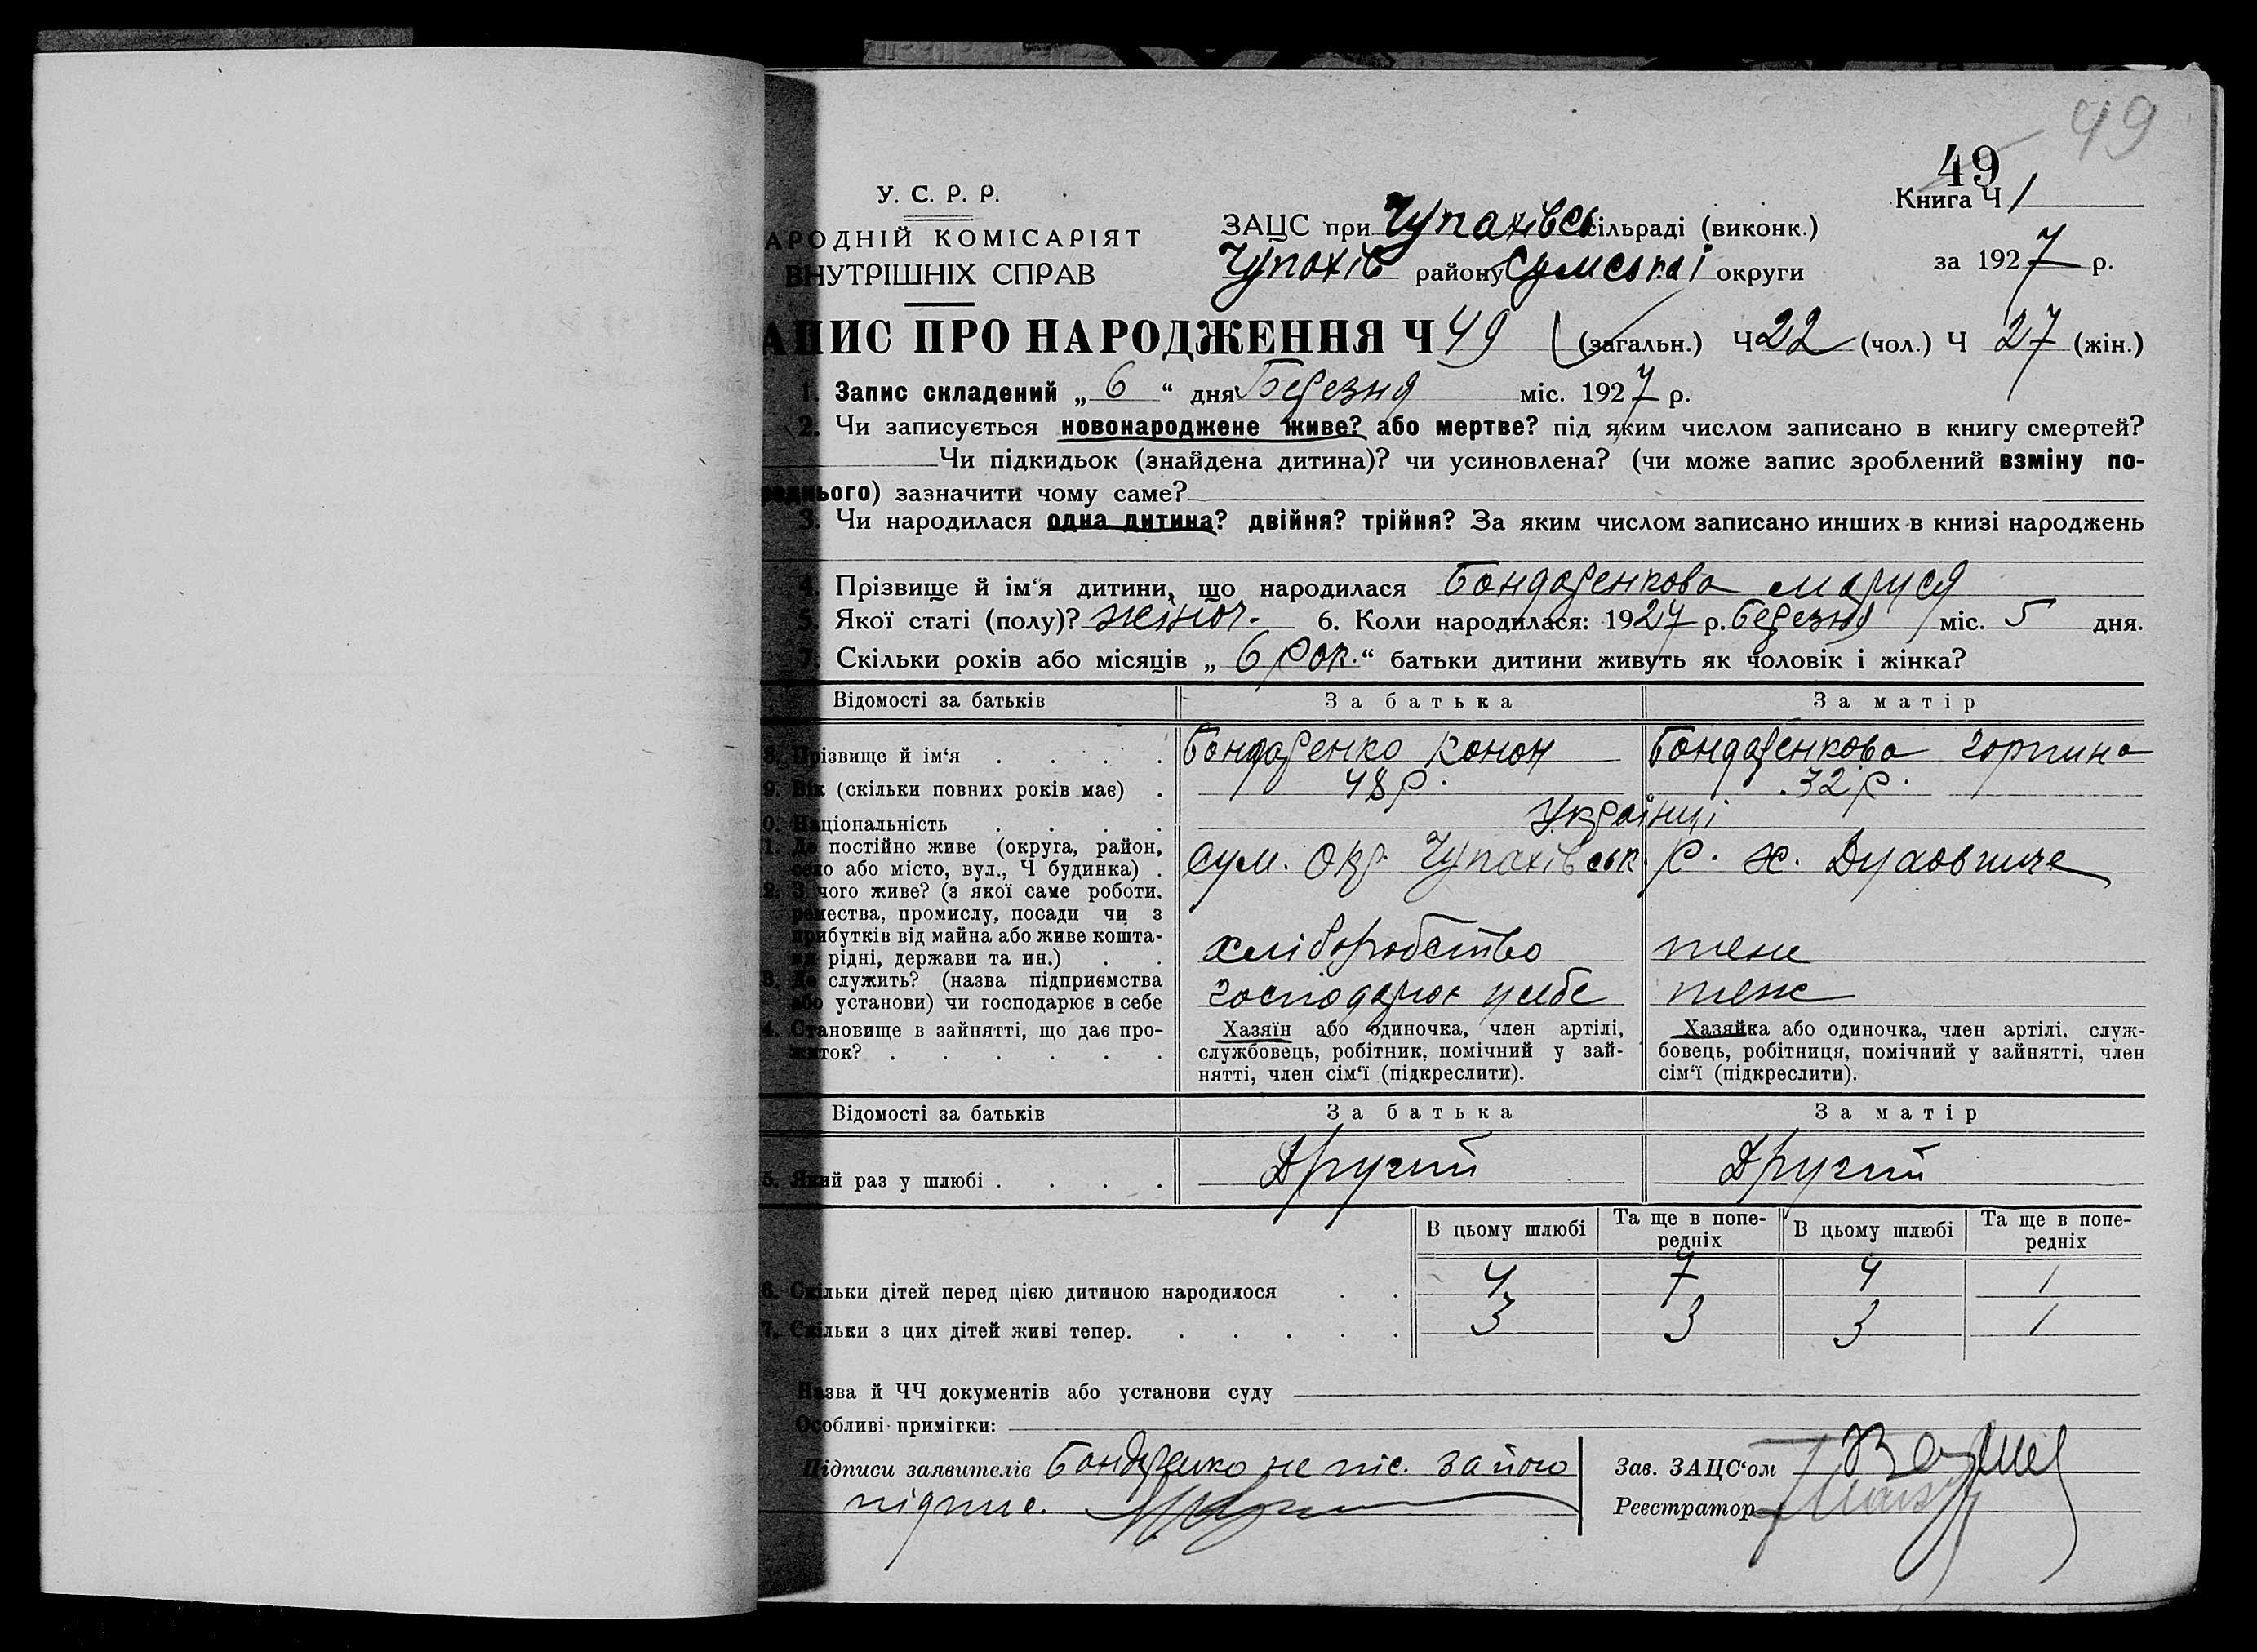 49
49
У. С. Р. Р.
Книга Ч 1
АРОДНІЙ КОМІСАРІЯТ
ЗАЦС при Чупахівсь сільраді (виконк.)
ВНУТРІШНІХ СПРАВ
Чупахів району Сумської округи
за 1927 р.
АПИС ПРО НАРОДЖЕННЯ Ч 49 (загальн.) Ч 22 (чол.) Ч 27 (жін.)
1. Запис складений „ 6 “ дня Березня міс. 1927 р.
2. Чи записується новонароджене живе? або мертве? під яким числом записано в книгу смертей?
Чи підкидьок (знайдена дитина)? чи усиновлена? (чи може запис зроблений взміну по-
реднього) зазначити чому саме?
3. Чи народилася одна дитина? двійня? трійня? За яким числом записано инших в книзі народжень
4. Прізвище й ім‘я дитини, що народилася Бондаренкова Маруся
5. Якої статі (полу)? жіноч. 6. Коли народилася: 1927 р. Березня міс. 5 дня.
7. Скільки років або місяців „ 6 рок. “ батьки дитини живуть як чоловік і жінка?
Відомості за батьків За батька За матір
8. Прізвище й ім‘я Бондаренко Конон Бондаренкова Горпина
9. Вік (скільки повних років має) 48 р. 32 р.
0. Національність Українці
1. Де постійно живе (округа, район,
село або місто, вул., Ч будинка) Сум. Окр. Чупахівськ. р. х. Духовниче
2. З чого живе? (з якої саме роботи,
ремества, промислу, посади чи з
прибутків від майна або живе кошта-
ми рідні, держави та ин.) хліборобство теж
3. Де служить? (назва підприємства
або установи) чи господарює в себе господарює у себе теж
4. Становище в зайнятті, що дає про-
житок?
Хазяїн або одиночка, член артілі,
службовець, робітник, помічний у зай-
нятті, член сім‘ї (підкреслити).
Хазяйка або одиночка, член артілі, служ-
бовець, робітниця, помічний у зайнятті, член
сім‘ї (підкреслити).
Відомості за батьків За батька За матір
5. Який раз у шлюбі Другий Другий
В цьому шлюбі Та ще в попе-
редніх В цьому шлюбі Та ще в попе-
редніх
6. Скільки дітей перед цією дитиною народилося 4 7 4 1
7. Скільки з цих дітей живі тепер. 3 3 3 1
Назва й ЧЧ документів або установи суду
Особливі примігки:
Підписи заявителів Бондаренко не пис. за його
підпис.
Зав. ЗАЦС‘ом
Реєстратор